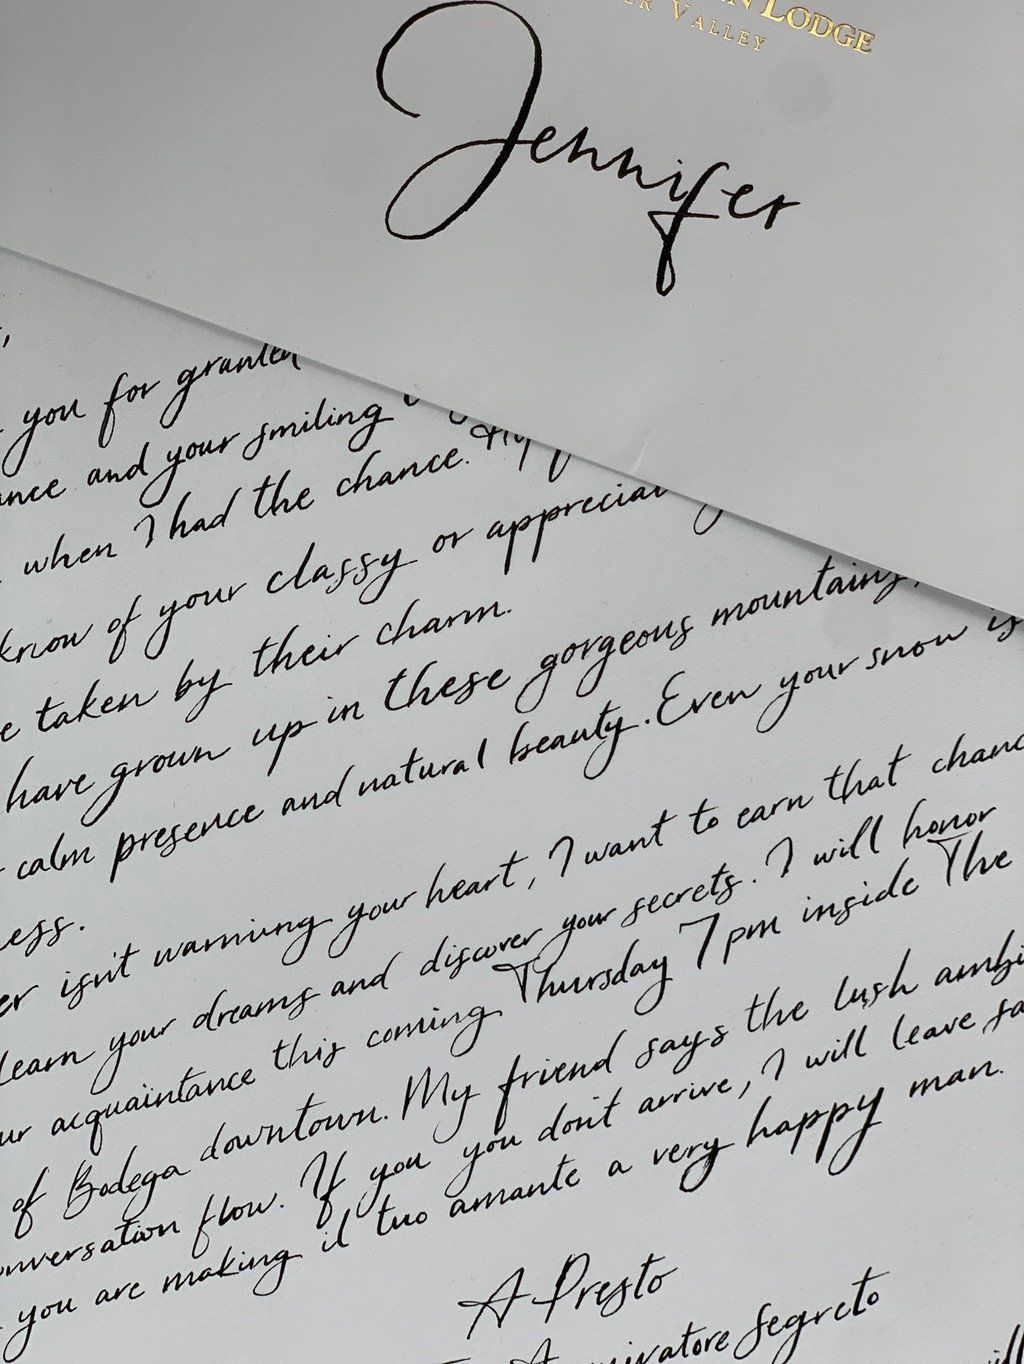 N LODGE
ER VALLEY
Jennifer
,
you for granted
ance and your smiling
when I had the chance. My
know of your classy or appreciat
e taken by their charm.
have grown up in these gorgeous mountains,
calm presence and natural beauty. Even your snow is
ess.
er isn't warming your heart, I want to earn that chanc
learn your dreams and discover your secrets. I will honor
ur acquaintance this coming Thursday 7pm inside The
of Bodega downtown. My friend says the lush ambi
onversation flow. If you don't arrive, I will leave sa
you are making il tuo amante a very happy man.
A Presto
Ammiratore Segreto